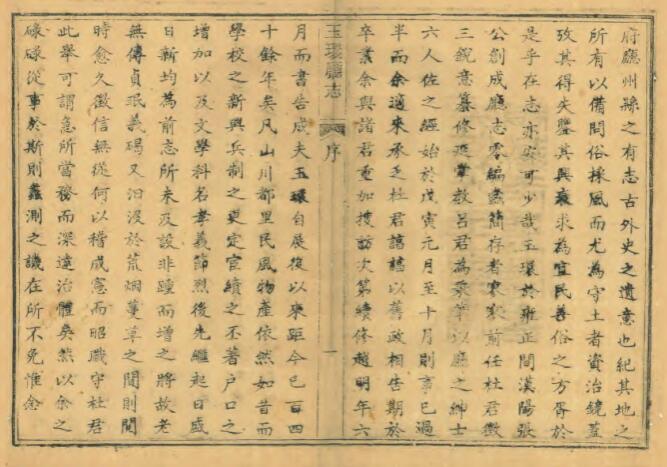 府廳州縣之有志古外史之遺意也紀其地之
所有以備問俗採風而尤為守土者資治鏡蓋
攷其得失鑒其興衰求為宜民善俗之方胥於
是乎在志亦安可少哉玉環於雍正間漢陽張
公創成廳志零編蠹簡存者寥寥前任杜君徵
三銳意纂修延掌教呂君為秉筆以廳之紳士
六人佐之經始於戊寅元月至十月則事已過
半而余適來承乏杜君諄諄以舊政相告期於
卒業余與諸君重加搜訪次第續修越明年六
玉環廳志 序 一
月而書告成夫玉環自展復以來距今已百四
十餘年矣凡山川都里民風物產依然如昔而
學校之新興兵制之更定官績之丕著戶口之
增加以及文學科名孝義節烈後先繼起日盛
日新均為前志所未及設非踵而增之將故老
無傳貞珉義碣又汩沒於荒烟蔓草之間則閱
時愈久徵信無從何以稽成憲而昭職守杜君
此舉可謂急所當務而深達治體矣然以余之
碌碌從事於斯則蠡測之譏在所不免惟念